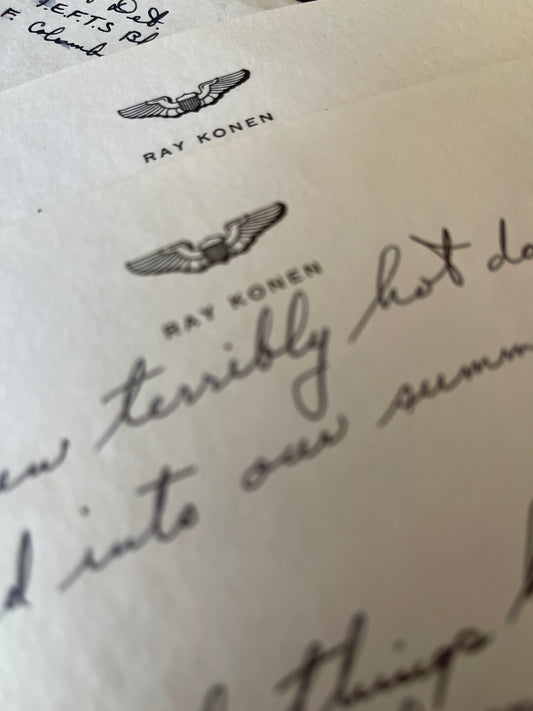 Det.
T.E.F.T.S Bl
F. Columb
RAY KONEN
RAY KONEN
terribly hot da
d into our summ
things